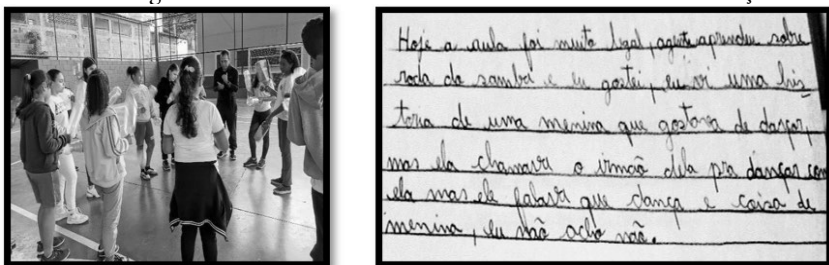 Hoje a aula foi muito legal, agente aprendeu sobre
roda de samba e eu gostei, eu vi uma his-
toria de uma menina que gostava de dançar,
mas ela chamava o irmão dela pra dançar com
ela mas ele falava que dança e coisa de
menina, eu não acho não.